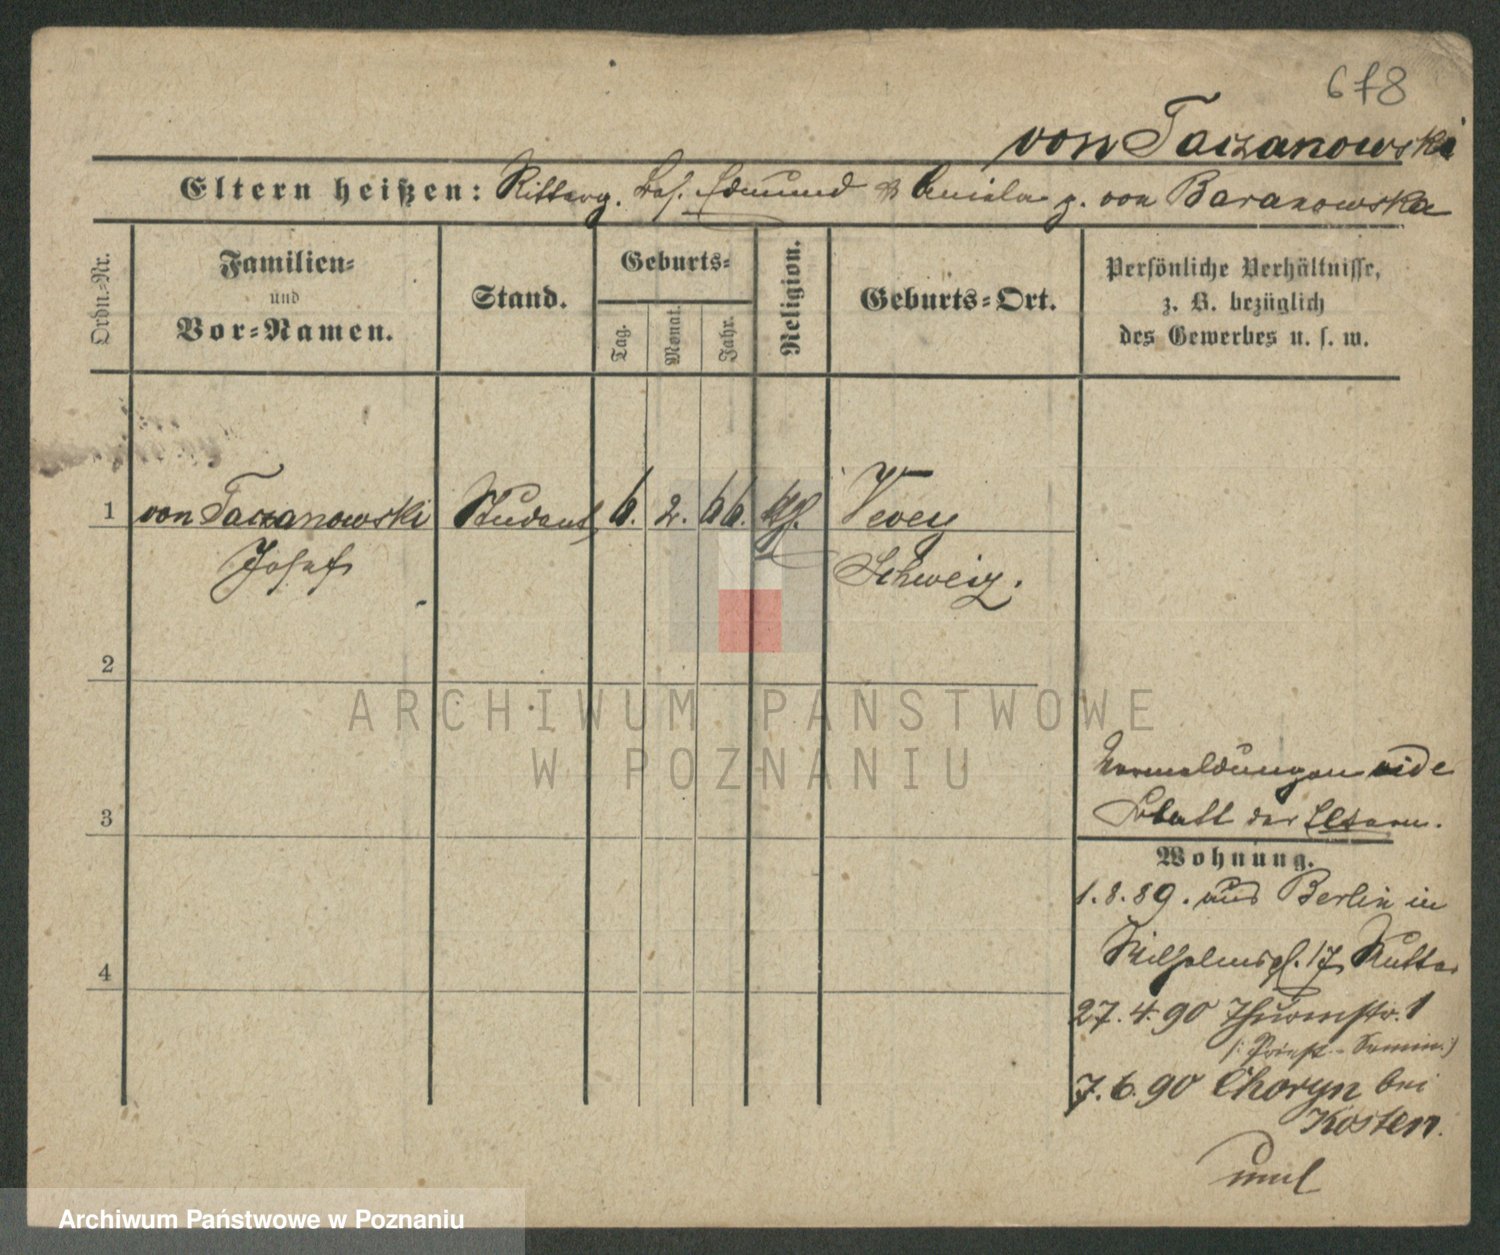 678
von Taczanowski
Eltern heißen: Ritterg. Bes. Edmund & Aniela g. von Baranowska
Ordn.-Nr.
Familien-
und
Vor-Namen.
Stand.
Geburts-
Tag.
Monat.
Jahr.
Religion.
Geburts-Ort.
Persönliche Verhältnisse,
z. B. bezüglich
des Gewerbes u. s. w.
1 von Taczanowski Student 6. 2. 66. kth. Vevey
Josef Schweiz.
2
ARCHIWUM PAŃSTWOWE
W POZNANIU
3
4
Vormeldungen vide
Blatt der Eltern.
Wohnung.
1.8.89. aus Berlin in
Wilhelmspl. 17
27.4.90 Thurmstr. 1
(: Priest.-Semin. :)
7.6.90 Choryn bei
Kosten.
Archiwum Państwowe w Poznaniu